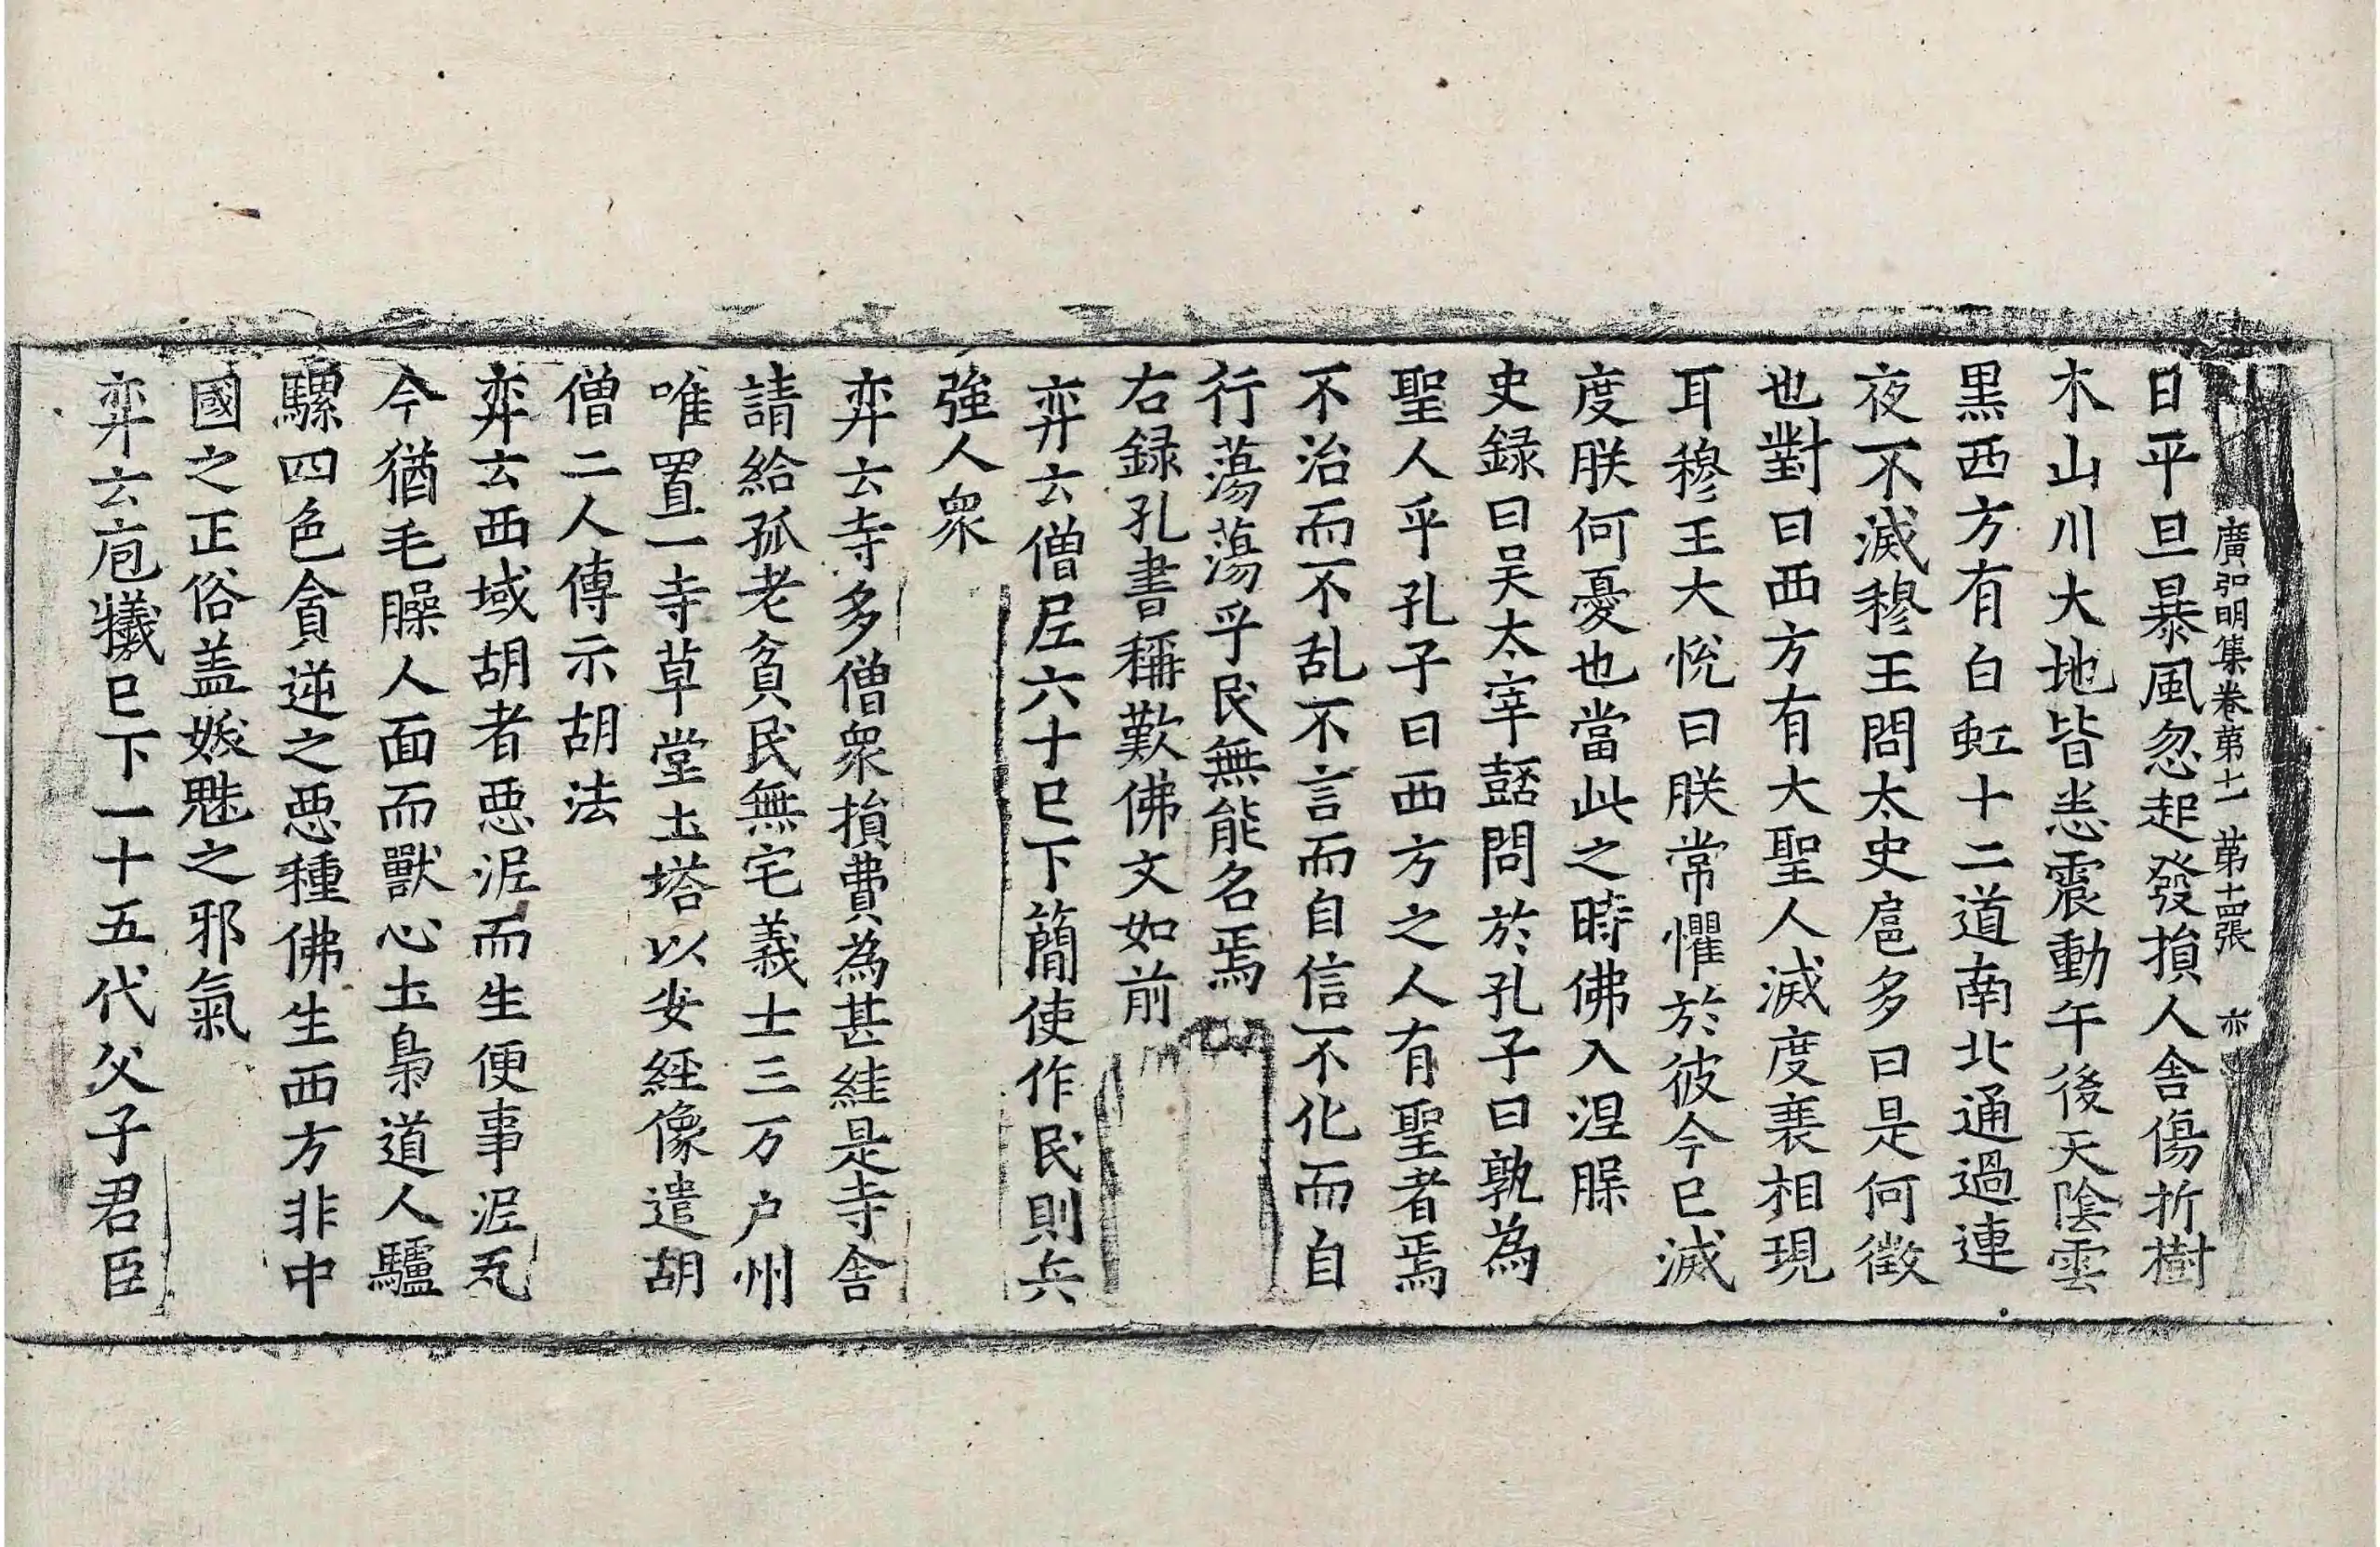 廣弘明集卷第十一 第十四張 亦
日平旦暴風忽起發損人舎傷折樹
木山川大地皆悉震動午後天陰雲
黒西方有白虹十二道南北通過連
夜不滅穆王問太史扈多曰是何徴
也對曰西方有大聖人滅度衰相現
耳穆王大恱曰朕常懼於彼今巳滅
度朕何憂也當此之時佛入涅𣊬
史録曰吴太宰嚭問於孔子曰孰為
聖人乎孔子曰西方之人有聖者焉
不治而不乱不言而自信不化而自
行蕩蕩乎民無能名焉
右録孔書稱歎佛文如前
弈云僧𡰱六十巳下簡使作民則兵
強人衆
弈云寺多僧衆損費為甚絓是寺舎
請給孤老貧民無宅義士三万户州
唯置一寺草堂土塔以安經像遣胡
僧二人傳示胡法
弈云西域胡者惡泥而生便事泥瓦
今猶毛臊人面而獸心土梟道人驢
騾四色貪逆之惡種佛生西方非中
國之正俗盖妖魅之邪氣
弈云庖犧巳下一十五代父子君臣